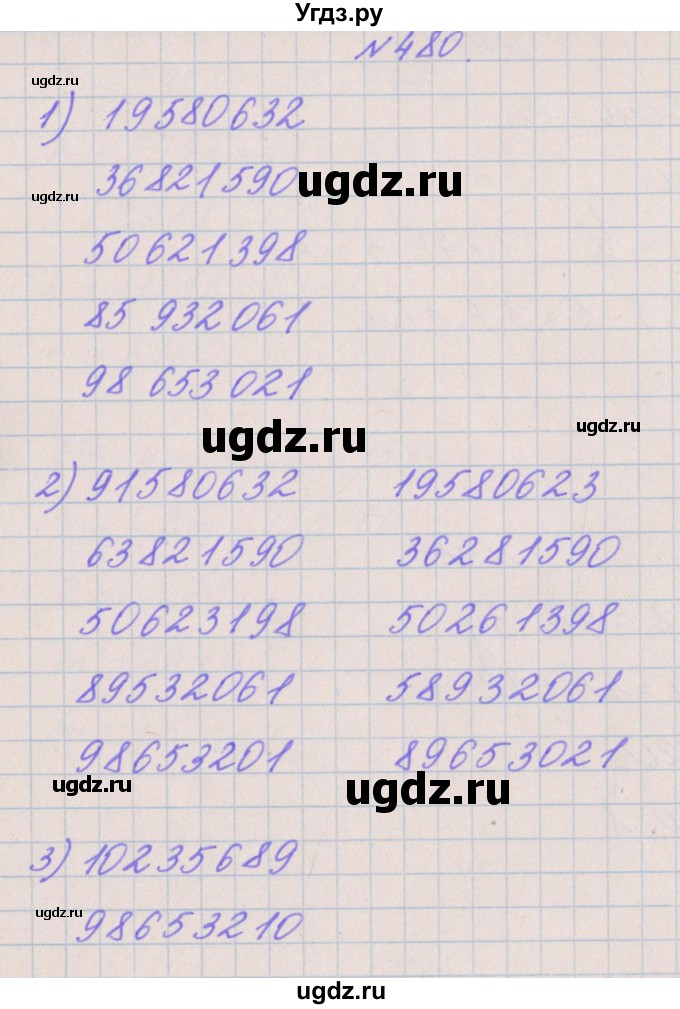 Угдз.ру
№480.
ugdz.ru
1) 19580632
36821590
ugdz.ru
ugdz.ru
50621398
85 932 061
98 653 021
ugdz.ru
ugdz.ru
2) 91580632 19580623
63821590 36281590
50623198 50261398
89532061 58932061
98653201 89653021
ugdz.ru
ugdz.ru
3) 10235689
ugdz.ru
98653210
ugdz.ru